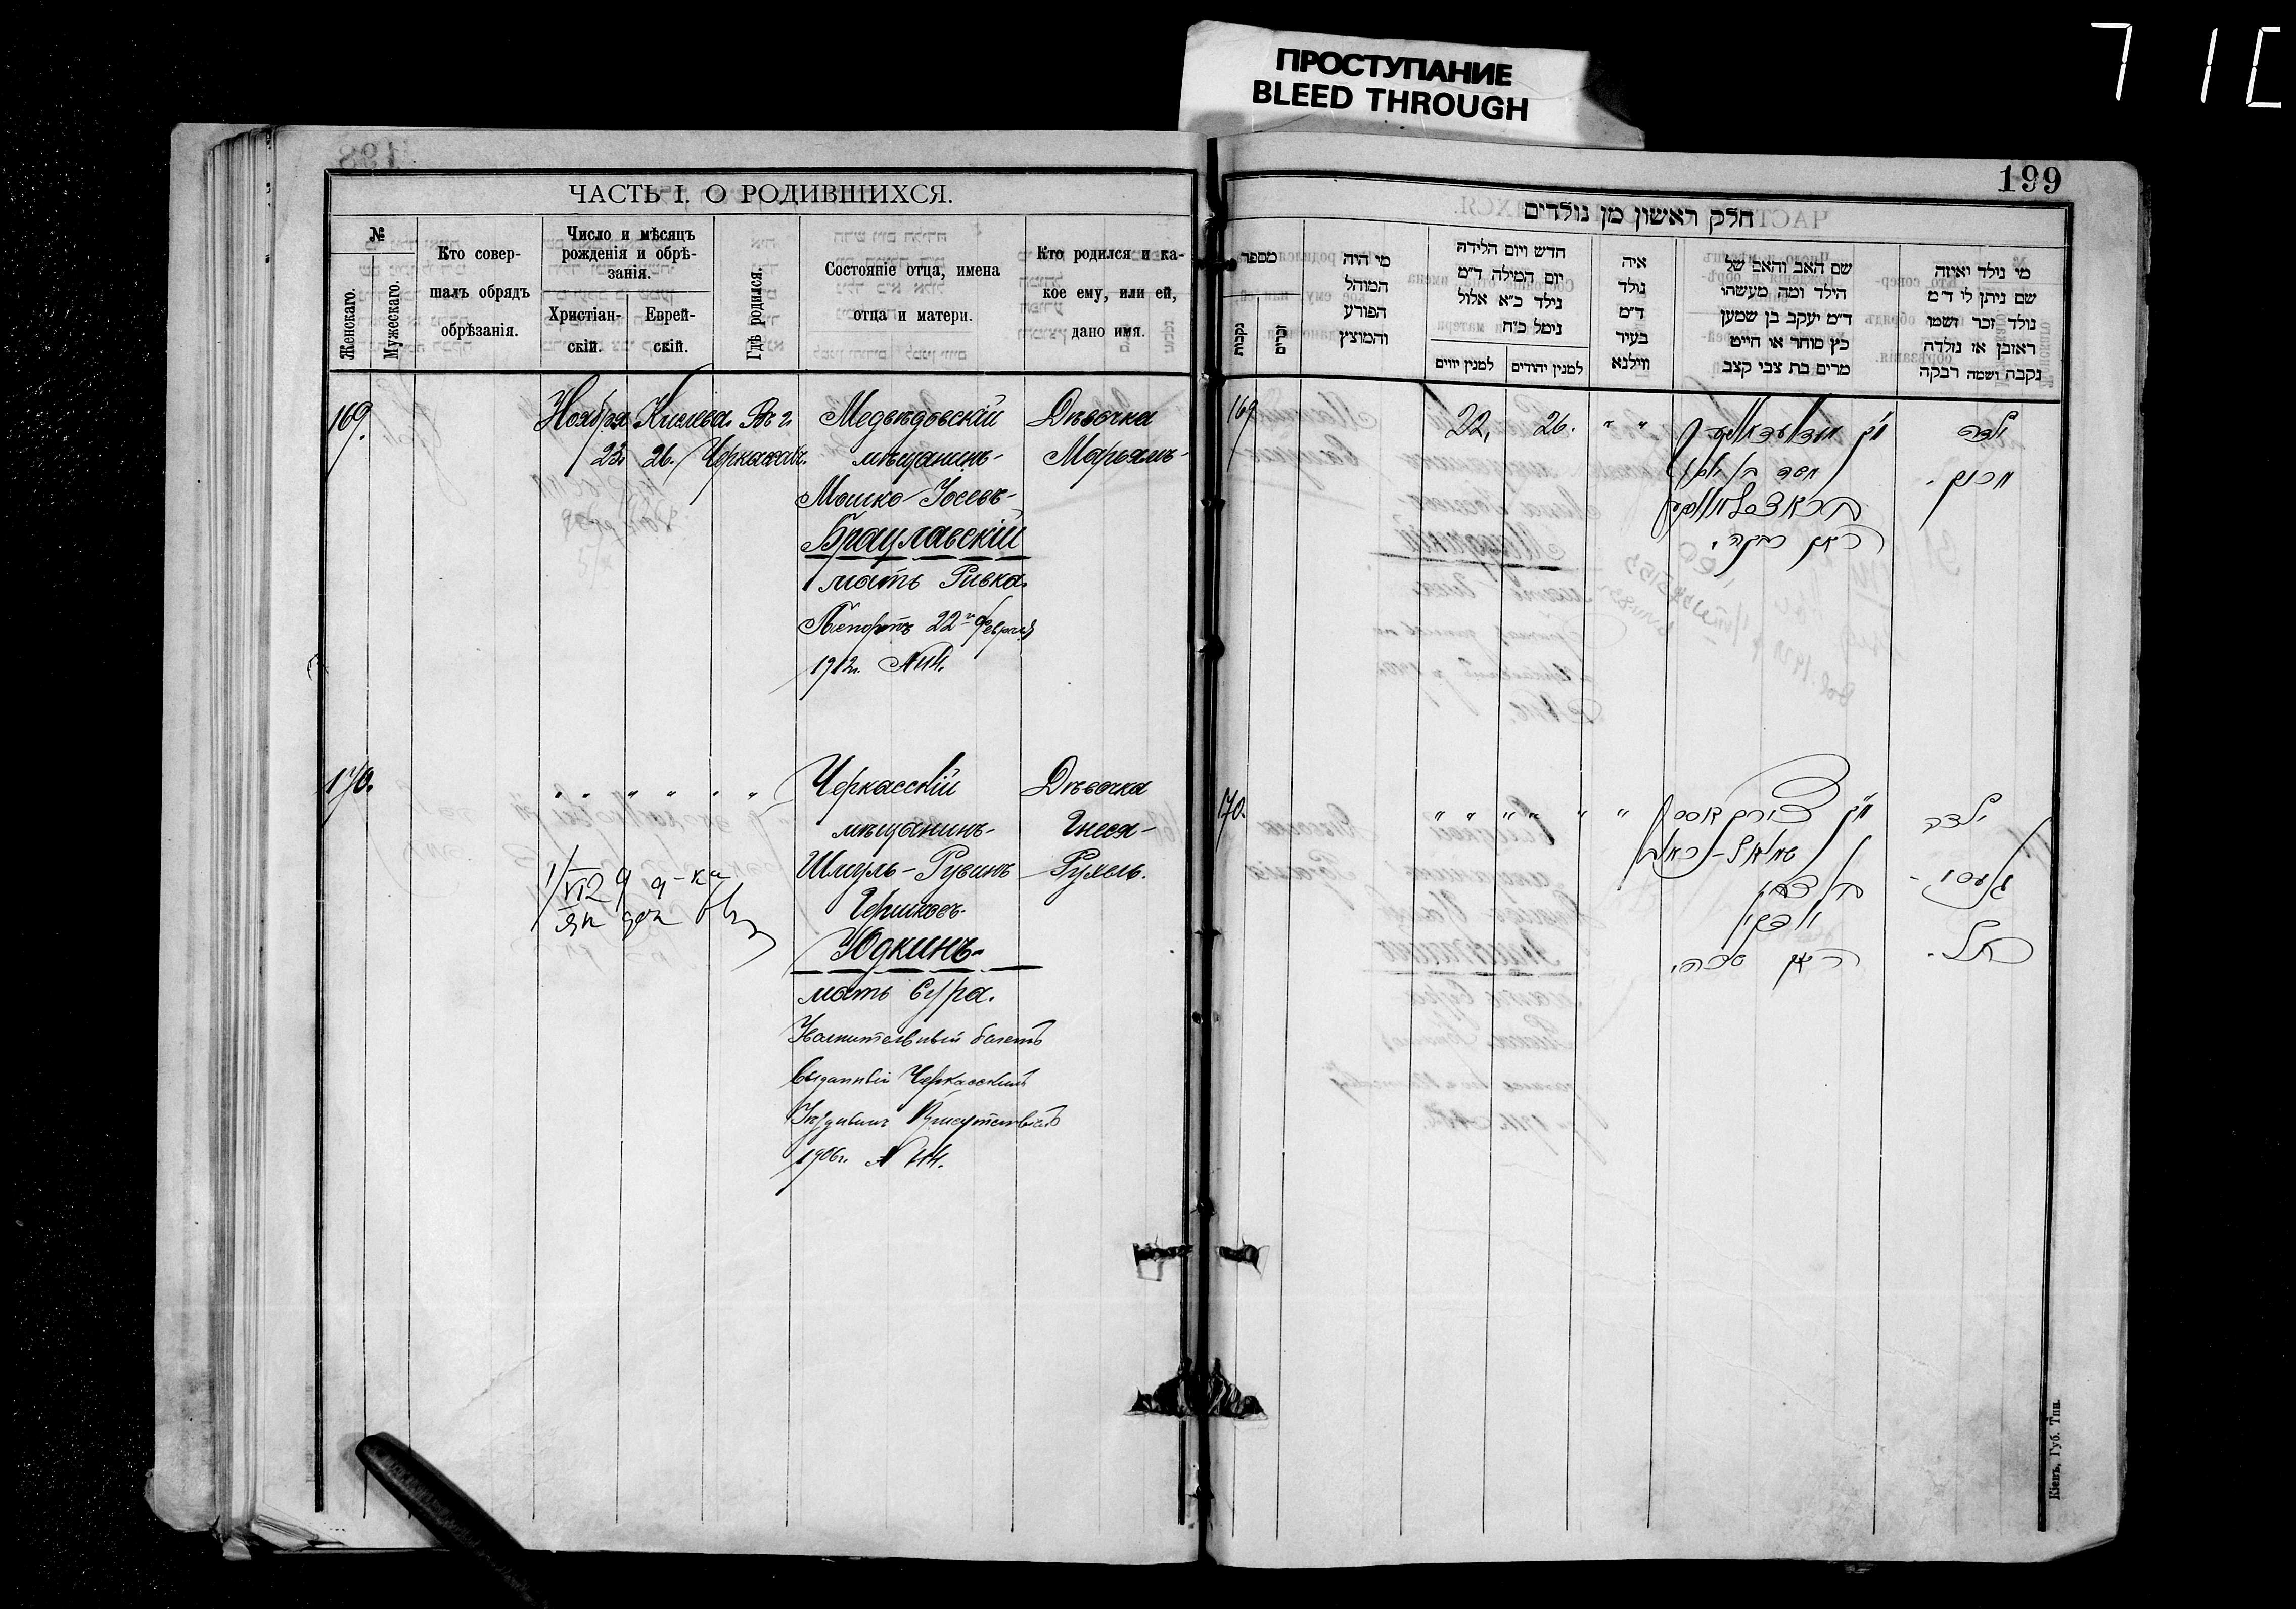 ПРОСТУПАНИЕ
BLEED THROUGH
199
ЧАСТЬ I. О РОДИВШИХСЯ.
№
Женскаго.
Мужескаго.
Кто совер-
шалъ обрядъ
обрѣзанія.
Число и мѣсяцъ
рожденія и обрѣ-
занія.
Христіан-
скій.
Еврей-
скій.
Гдѣ родился.
Состояніе отца, имена
отца и матери.
Кто родился и ка-
кое ему, или ей,
дано имя.
169.
Ноября
22.
Кислева.
26.
Въ г.
Черкассахъ.
Медвѣдовскій
мѣщанинъ-
Мошко Іосевъ-
Брацлавскій
мать Ривка.
Паспортъ 22го Февраля
1912г.
Дѣвочка
Марьямъ-
170.
" " " " " "
Черкасскій
мѣщанинъ-
Шмуль-Рувинъ
Юдкинъ-
мать Сура.
выданный Черкасскимъ
Уѣзднымъ Присутствіемъ
1906г.
Дѣвочка
Гнеся-
Рухель.
חלק ראשון מן נולדים
מספר
נקבות
זכרים
מי היה
המוהל
הפורע
והמוצץ
חדש ויום הלידה
יום המילה ד״מ
נילד כ״א אלול
נימל כ״ח
למנין יווים
למנין יהודים
איה
נולד
ד״מ
בעיר
ווילנא
שם האב והאם של
הילד ומה מעשהו
ד״מ יעקב בן שמען
כץ סוחר או חייט
מרים בת צבי קצב
מי נולד ואיזה
שם ניתן לו ד״מ
נולד זכר ושמו
ראובן או נולדה
נקבה ושמה רבקה
169
22,
26.
" "
האם רבקה.
ילדה
מרים.
170.
" " " " " "
שמואל-ראובן
האם שרה.
ילדה
גנעסי -
רחל.
Кіевъ, Губ. Тип.